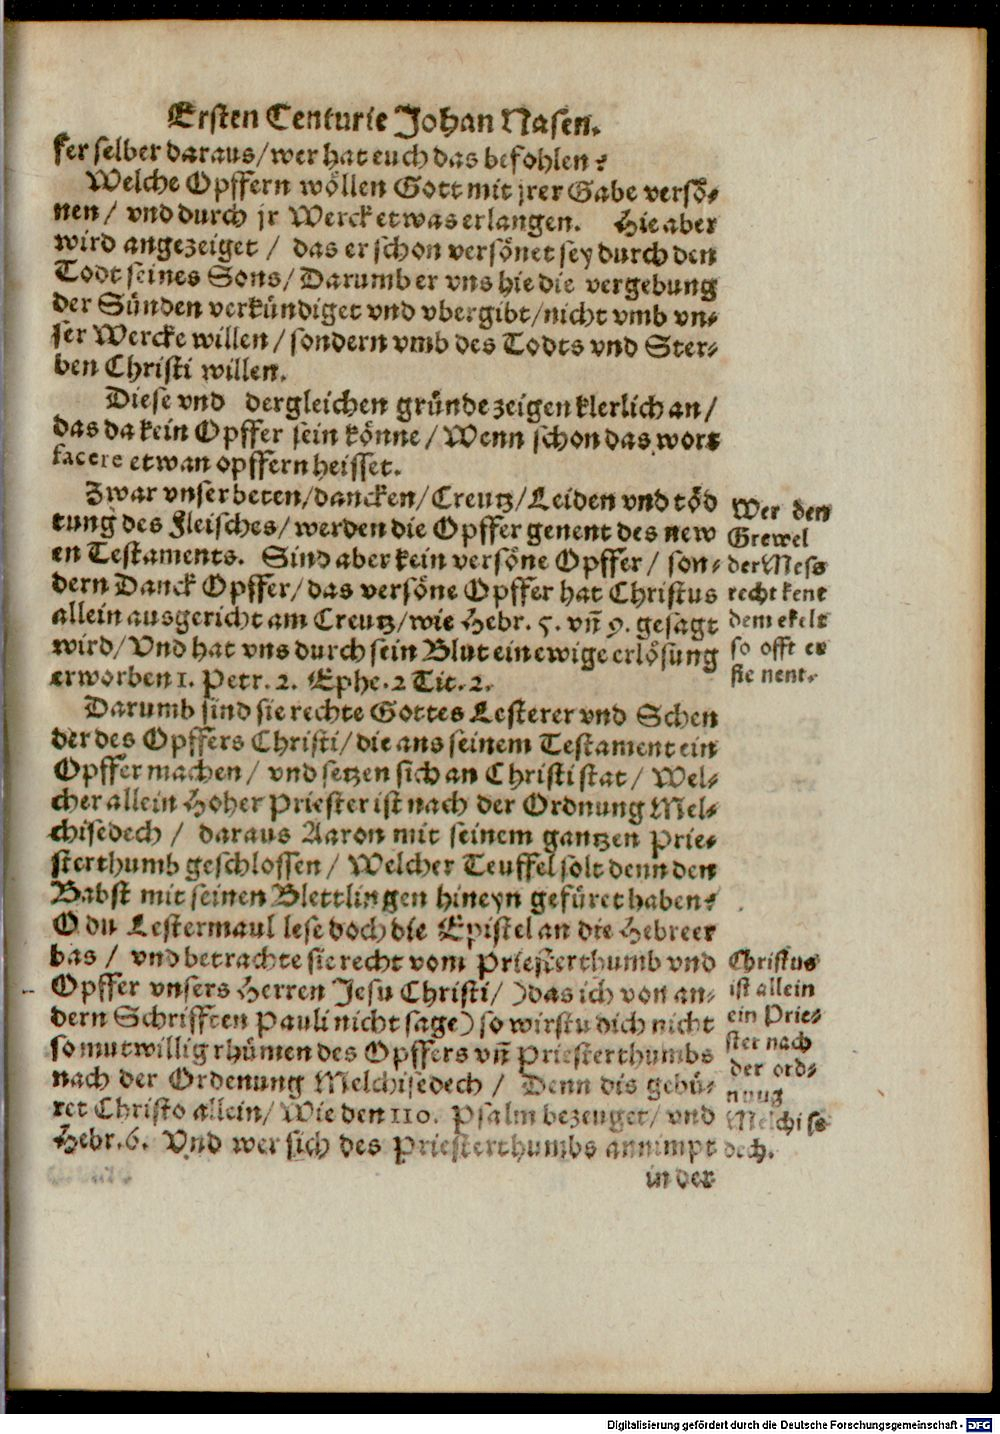 Ersten Centurie Johan Nasen.
fer selber daraus/wer hat euch das befohlen?
Welche Opffern wöllen Gott mit jrer Gabe versö-
nen/ vnd durch jr Werck etwas erlangen. Hie aber
wird angezeiget/ das er schon versönet sey durch den
Todt seines Sons/Darumb er vns hie die vergebung
der Sünden verkündiget vnd vbergibt/nicht vmb vn-
ser Wercke willen/sondern vmb des Todts vnd Ster-
ben Christi willen.
Diese vnd dergleichen gründe zeigen klerlich an/
das da kein Opffer sein könne/Wenn schon das wort
facere etwan opffern heisset.
Zwar vnser beten/dancken/Creutz/Leiden vnd töd
tung des Fleisches/werden die Opffer genent des new
en Testaments. Sind aber kein versöne Opffer/ son-
dern Danck Opffer/das versöne Opffer hat Christus
allein ausgericht am Creutz/wie Hebr. 5. vñ 9. gesagt
wird/Vnd hat vns durch sein Blut ein ewige erlösung
erworben 1. Petr. 2. Ephe. 2 Tit. 2.
Wer den
Grewel
der Mess
recht kent
dem ekelt
so offt er
sie nent.
Darumb sind sie rechte Gottes Lesterer vnd Schen
der des Opffers Christi/die ans seinem Testament ein
Opffer machen/ vnd setzen sich an Christi stat/ Wel-
cher allein Hoher Priester ist nach der Ordnung Mel-
chisedech/ daraus Aaron mit seinem gantzen Prie-
sterthumb geschlossen/ Welcher Teuffel solt denn den
Babst mit seinen Blettlingen hineyn gefüret haben?
O du Lestermaul lese doch die Epistel an die Hebreer
bas/ vnd betrachte sie recht vom Priesterthumb vnd
Opffer vnsers Herren Jesu Christi/ )das ich von an-
dern Schrifften Pauli nicht sage) so wirstu dich nicht
so mutwillig rhümen des Opffers vñ Priesterthumbs
nach der Ordenung Melchisedech/ Denn dis gebü-
ret Christo allein/ Wie den 110. Psalm bezeuget/ vnd
Hebr. 6. Vnd wer sich des Priesterthumbs annimpt
Christus
ist allein
ein Prie-
ster nach
der ord-
nung
Melchise
dech.
in der
Digitalisierung gefördert durch die Deutsche Forschungsgemeinschaft - DFG